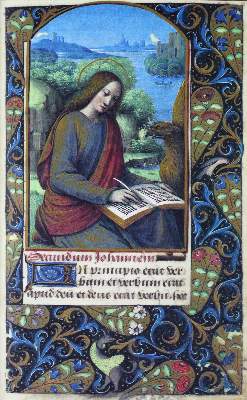 Secundum Johannem
In principio erat ver
bum et verbum erat
apud deū et deus erat verbū. hoc